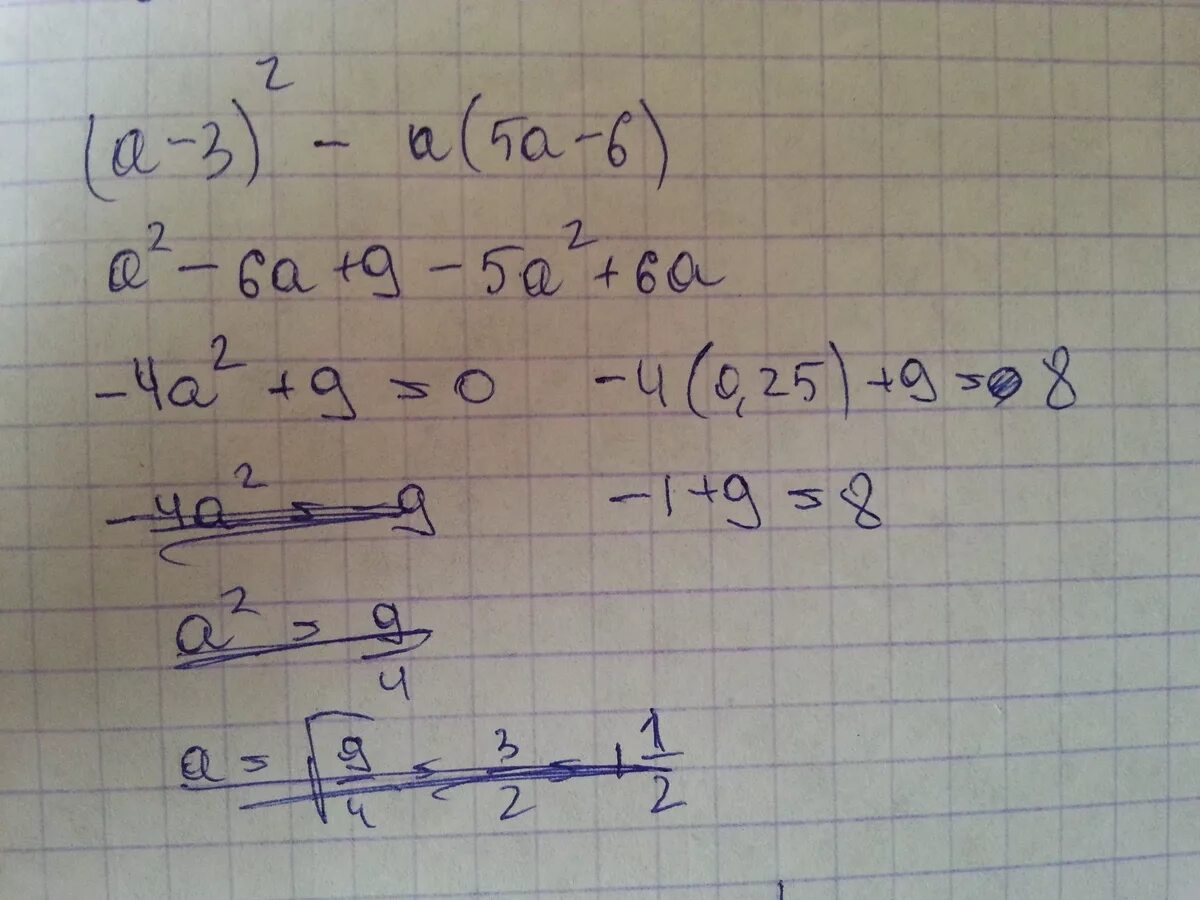 (a-3)² - a(5a-6)
a² - 6a + 9 - 5a² + 6a
-4a² + 9 = 0
-4(0,25) + 9 = 8
-4a² = -9
-1 + 9 = 8
a² = 9/4
a = √9/4 = 3/2 = 1 1/2